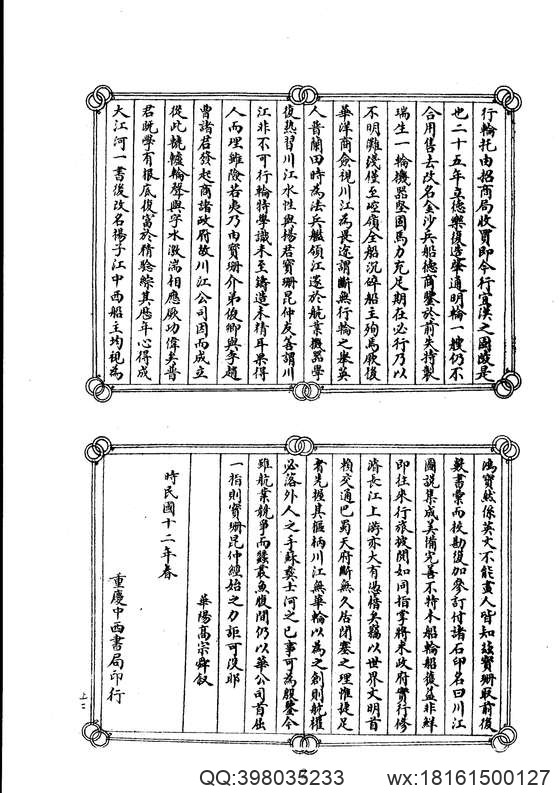 行輪托由招商局收買即今行宜漢之固陵是
也二十五年立德樂復造肇通明輪一艘仍不
合用售去改名金沙兵船德商鑒於前失特製
瑞生一輪機器堅固馬力充足期在必行乃以
不明灘淺僅至崆嶺全船沉碎船主殉焉厥後
華洋商僉視川江為畏途謂斷無行輪之舉英
人晋蘭田時為法兵艦領江邃於航業機器學
復熟習川江水性與楊君寶珊昆仲友善謂川
江非不可行輪特學識未至鑄造未精耳果得
人而理雖險若夷乃由寶珊介弟俊卿與李趙
曹諸君發起商諸政府故川江公司因而成立
從此競轆輪聲與字水激湍相應厥功偉矣普
君既學有根底復富於精驗綜其歷年心得成
大江河一書後改名揚子江中西船主均視為
鴻寶然係英文不能盡人皆知茲寶珊取前後
數書彙而校勘復加參訂付諸石印名曰川江
圖說集成美備完善不特木船輪船獲益非鮮
即往來行旅披閱如同指掌將來政府實行修
濬長江上游亦大有憑藉矣竊以世界文明首
賴交通巴蜀天府斷無久居閉塞之理惟捷足
者先握其樞柄川江無華輪以為之創則航權
必落外人之手蘇彝士河之已事可為殷鑒今
雖航業競爭而蠶叢魚腹間仍以華公司首屈
一指則寶珊昆仲經始之力詎可沒耶
華陽高宗舜敘
時民國十二年春
重慶中西書局印行
上二
QQ:398035233 wx:18161500127